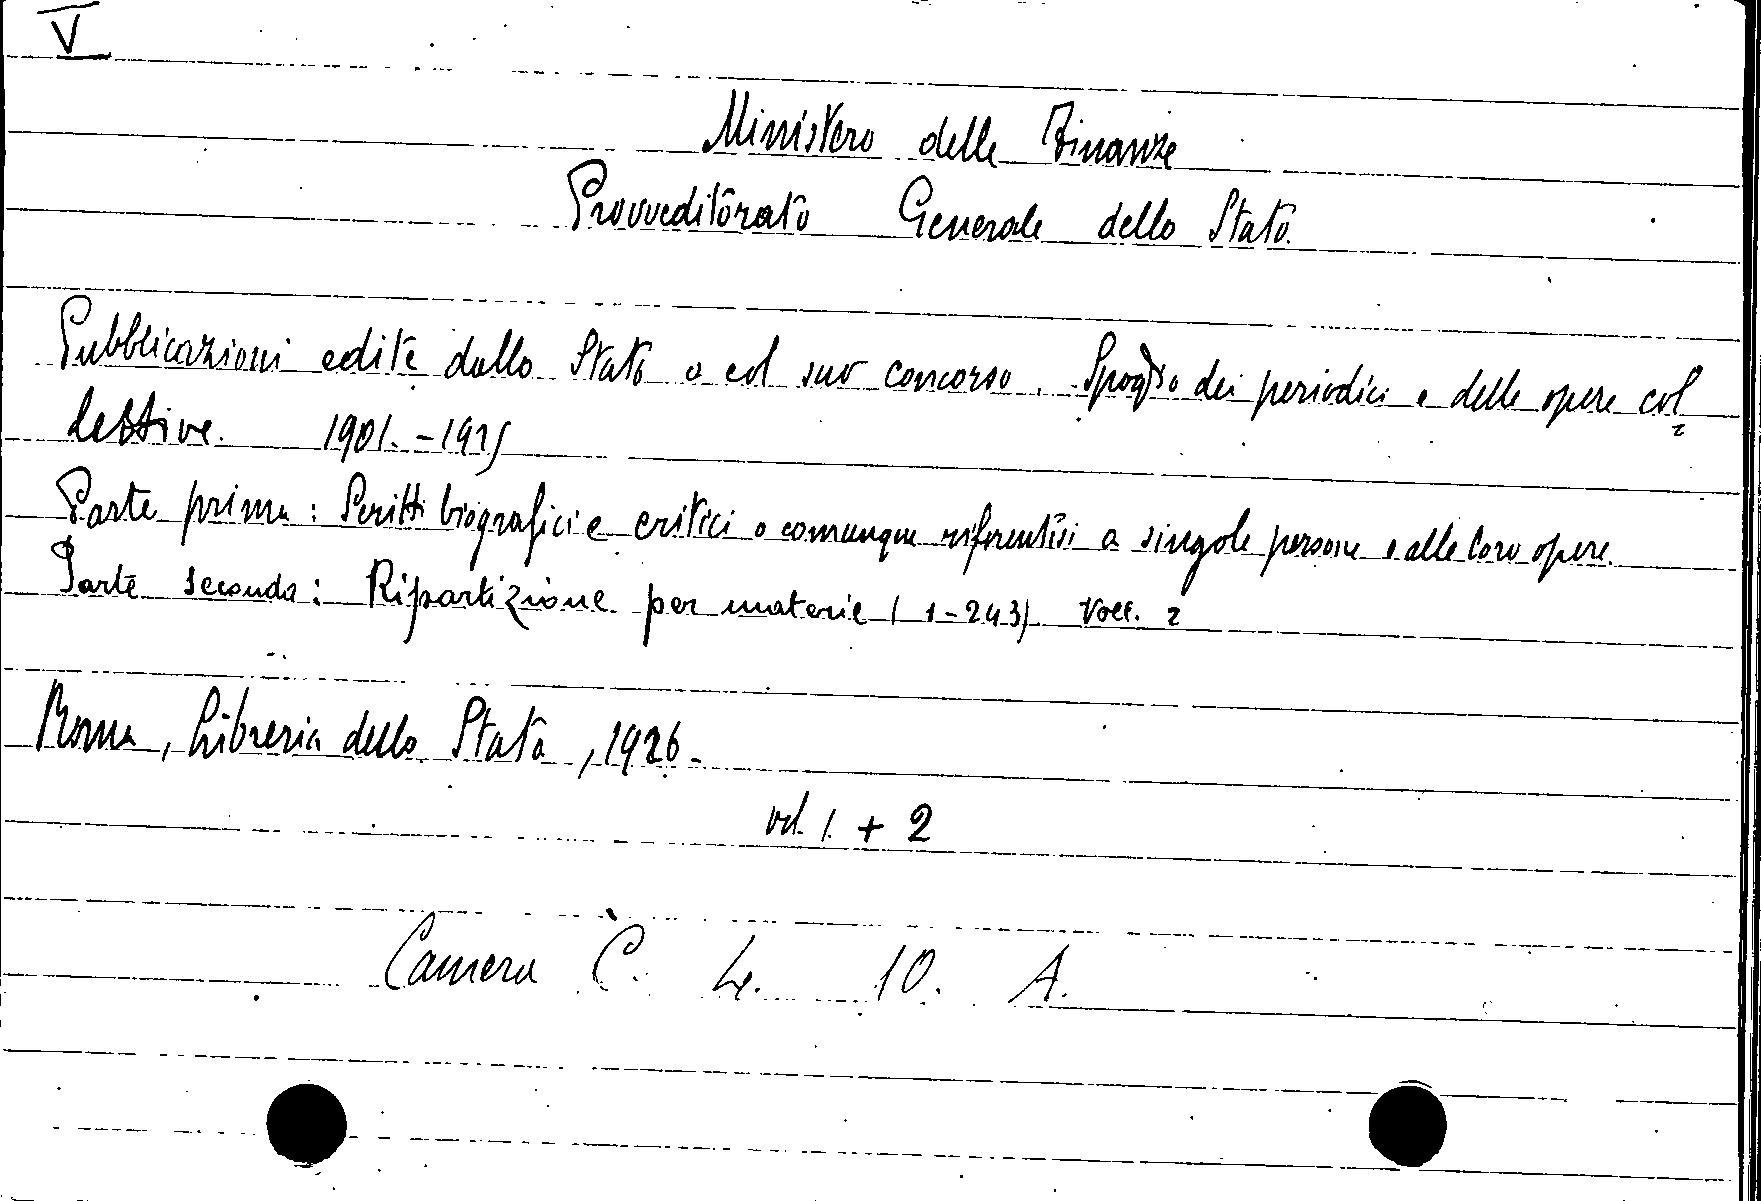 V
Ministero delle Finanze
Provveditorato Generale dello Stato.
Pubblicazioni edite dallo Stato o col suo concorso. Spoglio dei periodici e delle opere col=
lettive. 1901.-1925
Parte prima: Scritti biografici e critici o comunque riferentisi a singole persone e alle loro opere.
Parte seconda: Ripartizione per materie (1-243) Voll. 2
Roma, Libreria dello Stato, 1926.
vol. 1. + 2
Camera C. 4. 10. A.